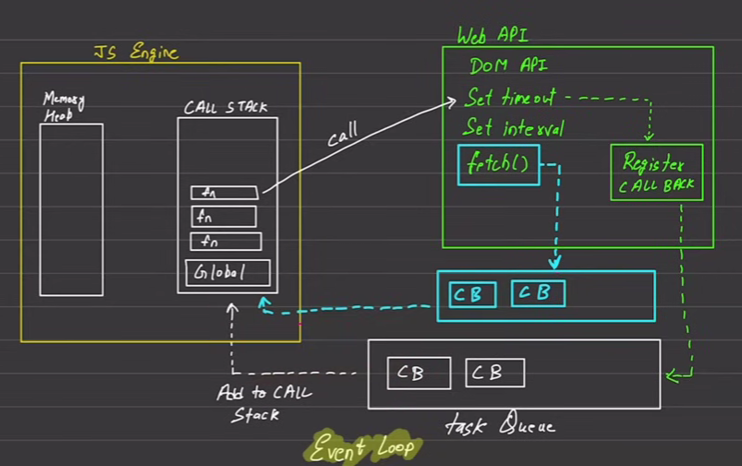 JS Engine
Memory
Heap
CALL STACK
fn
fn
fn
Global
call
Web API
DOM API
Set timeout
Set interval
fetch()
Register
CALL BACK
CB CB
CB CB
Add to CALL
Stack
task Queue
Event Loop